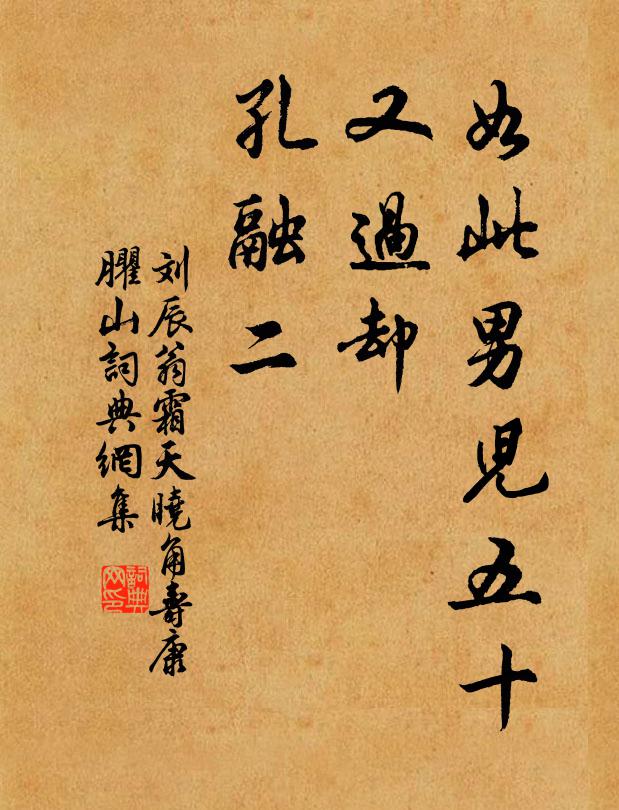 如此男児五十
又過却
孔融二
刘辰翁霜天曉角壽康
臞山詞典網集
詞典网印